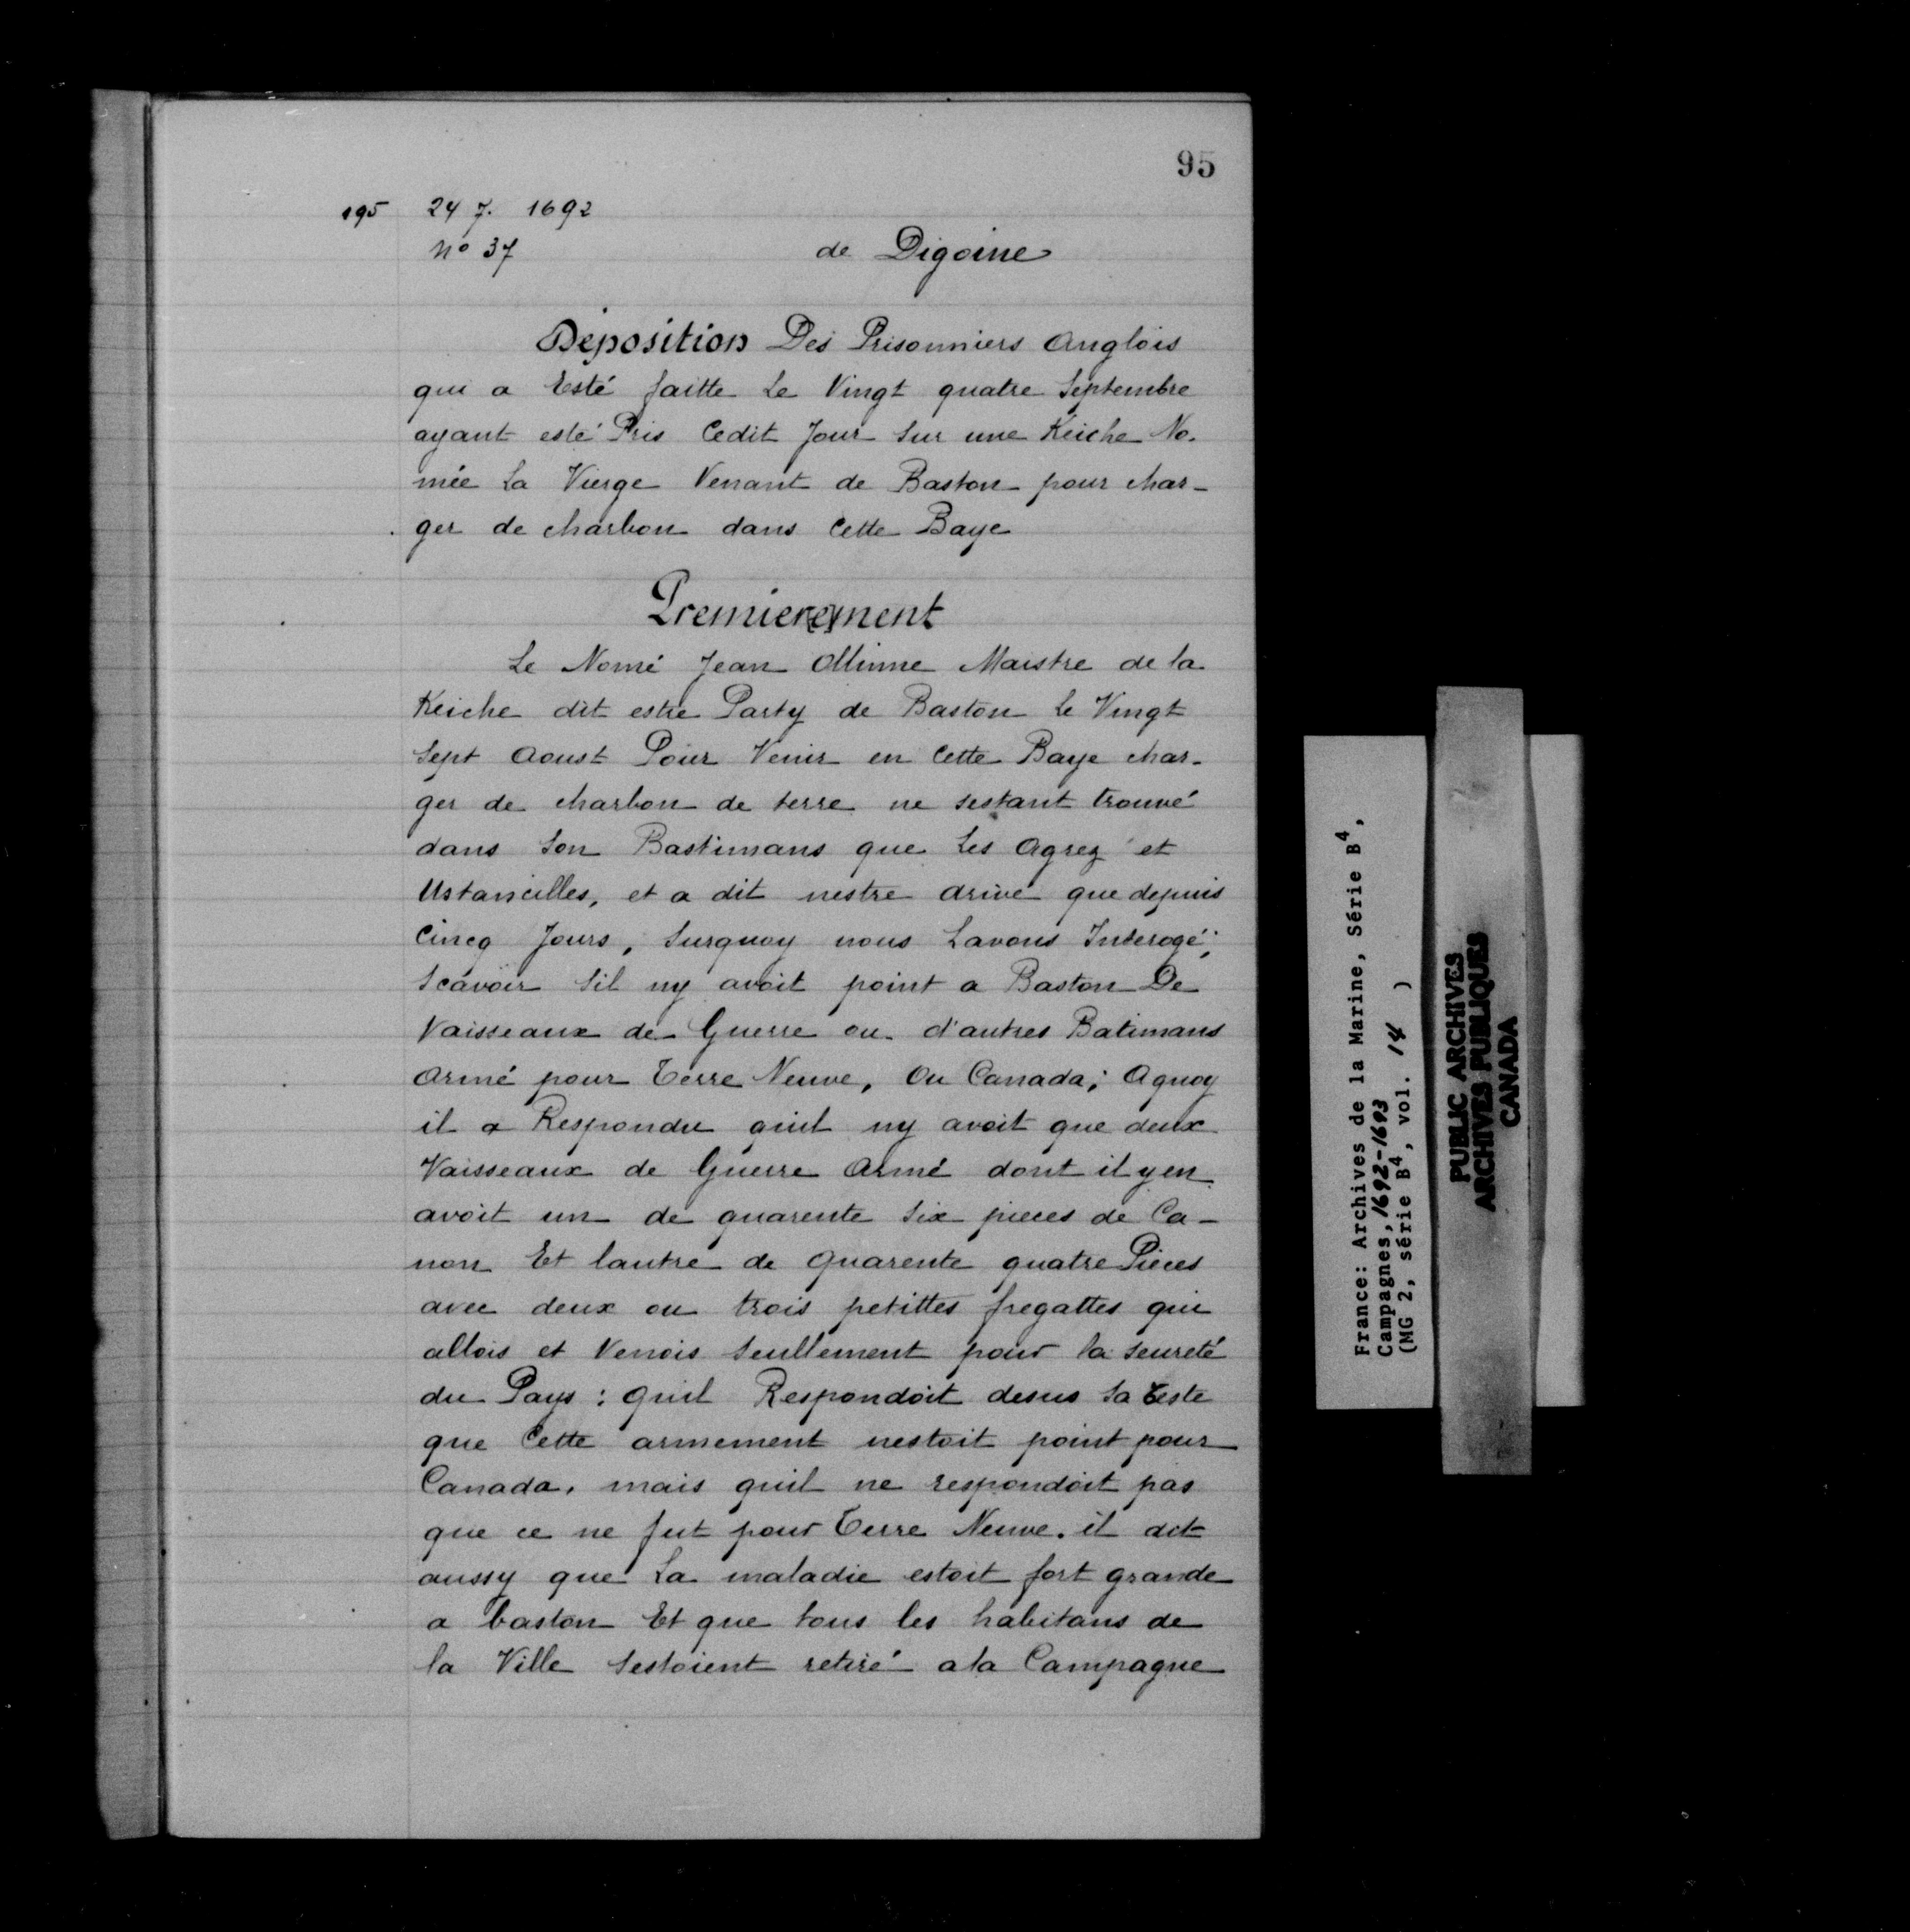 95
195 24 7. 1692
No 37 de Digoine
Déposition Des Prisonniers Anglois
qui a Esté faitte Le Vingt quatre Septembre
ayant esté Pris Cedit Jour Sur une Keiche No-
mée La Vierge Venant de Baston pour char-
ger de charbon dans Cette Baye
Premierement
Le Nomé Jean Maistre de la
Keiche dit estre Party de Baston Le Vingt
Sept Aoust Pour Venir en Cette Baye char-
ger de charbon de terre ne sestant trouvé
dans Son Bastimans que Les Agrez et
Ustancilles, et a dit nestre arivé que depuis
Cincq Jours, Surquoy nous Lavons Interogé;
Scavoir Sil ny avoit point a Baston De
Vaisseaux de Guerre ou d'autres Batimans
Armé pour Terre Neuve, Ou Canada; Aquoy
il a Respondu quil ny avoit que deux
Vaisseaux de Guerre Armé dont il y en
avoit un de quarente Six pieces de Ca-
non Et lautre de Quarente quatre Pieces
avec deux ou trois petittes fregattes qui
allois et Venois Seullement pour la Seureté
du Pays : Quil Respondoit desus Sa Teste
que Cette armement nestoit point pour
Canada, mais quil ne respondoit pas
que ce ne fut pour Terre Neuve. il dit
aussy que La maladie estoit fort grande
a baston Et que tous les habitans de
la Ville Sestoient retiré a la Campagne
France: Archives de la Marine, Série B4,
Campagnes, 1692-1693
(MG 2, série B4, vol. 14 )
PUBLIC ARCHIVES
ARCHIVES PUBLIQUES
CANADA